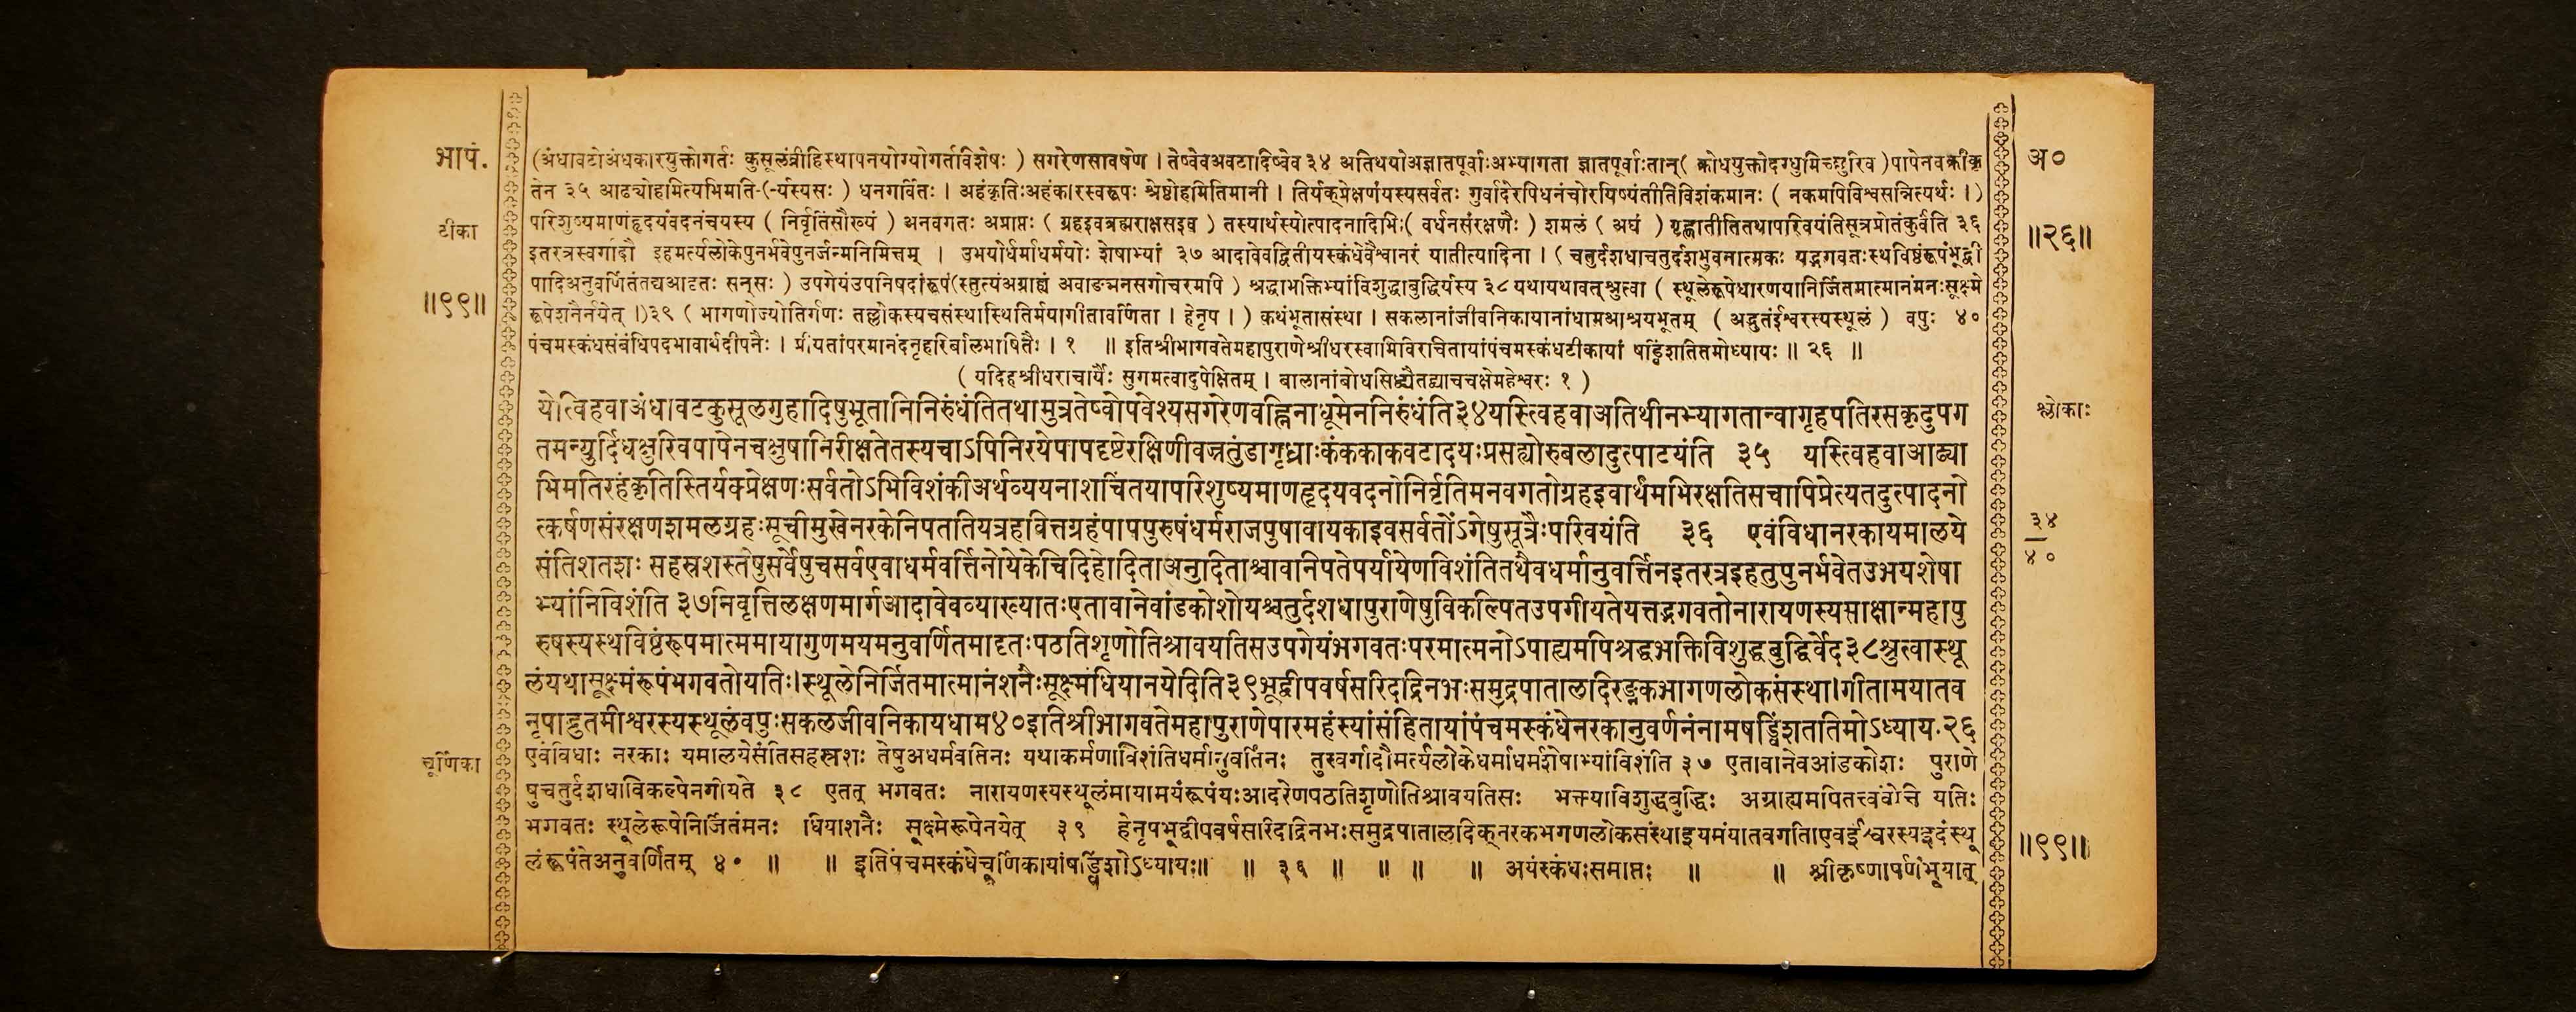 भापं.
टीका
॥९९॥
(अंधावटोअंधकारयुक्तोगर्तः कुसूलंव्रीहिस्थापनयोग्योगर्तविशेषः ) सगरेणसविषेण । तेष्वेवअवटादिष्वेव ३४ अतिथयोअज्ञातपूर्वाःअभ्यागता ज्ञातपूर्वाःतान्( क्रोधयुक्तोदग्धुमिच्छुरिव )पापेनवक्रीकृ
तेन ३५ आढ्योहमित्यभिमति-(-र्यस्यसः ) धनगर्वितः । अहंकृतिःअहंकारस्वरूपः श्रेष्ठोहमितिमानी । तिर्यक्प्रेक्षणंयस्यसर्वतः गुर्वादेरपिधनंचोरयिष्यंतीतिविशंकमानः ( नकमपिविश्वसन्नित्यर्थः ।)
परिशुष्यमाणंहृदयंवदनंचयस्य ( निर्वृतिंसौख्यं ) अनवगतः अप्राप्तः ( ग्रहइवब्रह्मराक्षसइव ) तस्यार्थस्योत्पादनादिभिः( वर्धनसंरक्षणैः ) शमलं ( अघं ) गृह्णातीतितथापरिवयंतिसूत्रप्रोतंकुर्वंति ३६
इतरत्रस्वर्गादौ इहमर्त्यलोकेपुनर्भवेपुनर्जन्मनिमित्तम् । उभयोर्धर्माधर्मयोः शेषाभ्यां ३७ आदावेवद्वितीयस्कंधेवैश्वानरं यातीत्यादिना । ( चतुर्दशधाचतुर्दशभुवनात्मकः यद्भगवतःस्थविष्ठंरूपंभूद्वी
पादिअनुवर्णितंतद्यआदृतः सन्सः ) उपगेयंउपनिषदांरूपं(स्तुत्यंअग्राह्यं अवाङ्मनसगोचरमपि ) श्रद्धाभक्तिभ्यांविशुद्धाबुद्धिर्यस्य ३८ यथायथावत्श्रुत्वा ( स्थूलेरूपेधारणयानिर्जितमात्मानंमनःसूक्ष्मे
रूपेशनैर्नयेत् ।)३९ ( भागणोज्योतिर्गणः तल्लोकस्यचसंस्थास्थितिर्मयागीतावर्णिता । हेनृप । ) कथंभूतासंस्था । सकलानांजीवनिकायानांधामआश्रयभूतम् ( अद्भुतंईश्वरस्यस्थूलं ) वपुः ४०
पंचमस्कंधसंबंधिपदभावार्थदीपनैः । प्रीयतांपरमानंदनृहरिर्बालभाषितैः । १ ॥ इतिश्रीभागवतेमहापुराणेश्रीधरस्वामिविरचितायांपंचमस्कंधटीकायां षड्विंशतितमोध्यायः ॥ २६ ॥
( यदिहश्रीधराचार्यैः सुगमत्वादुपेक्षितम् । बालानांबोधसिद्ध्यैतद्व्याचचक्षेमहेश्वरः १ )
येत्विहवाअंधावटकुसूलगुहादिषुभूतानिनिरुंधंतितथामुत्रतेष्वेवोपवेश्यसगरेणवह्निनाधूमेननिरुंधंति३४यस्त्विहवाअतिथीनभ्यागतान्वागृहपतिरसकृदुपग
तमन्युर्दिधक्षुरिवपापेनचक्षुषानिरीक्षतेतस्यचाऽपिनिरयेपापदृष्टेरक्षिणीवज्रतुंडागृध्राःकंककाकवटादयःप्रसह्योरुबलादुत्पाटयंति ३५ यस्त्विहवाआढ्या
भिमतिरहंकृतिस्तिर्यक्प्रेक्षणःसर्वतोऽभिविशंकीअर्थव्ययनाशचिंतयापरिशुष्यमाणहृदयवदनोनिर्वृतिमनवगतोग्रहइवार्थमभिरक्षतिसचापिप्रेत्यतदुत्पादनो
त्कर्षणसंरक्षणशमलग्रहःसूचीमुखेनरकेनिपततियत्रहवित्तग्रहंपापपुरुषंधर्मराजपुषावायकाइवसर्वतोंऽगेषुसूत्रैःपरिवयंति ३६ एवंविधानरकायमालये
संतिशतशः सहस्रशस्तेषुसर्वेषुचसर्वएवाधर्मवर्त्तिनोयेकेचिदिहोदिताअनुदिताश्चावनिपतेपर्यायेणविशंतितथैवधर्मानुवर्त्तिनइतरत्रइहतुपुनर्भवेतउभयशेषा
भ्यांनिविशंति ३७निवृत्तिलक्षणमार्गआदावेवव्याख्यातःएतावानेवांडकोशोयश्चतुर्दशधापुराणेषुविकल्पितउपगीयतेयत्तद्भगवतोनारायणस्यसाक्षान्महापु
रुषस्यस्थविष्ठंरूपमात्ममायागुणमयमनुवर्णितमादृतःपठतिशृणोतिश्रावयतिसउपगेयंभगवतःपरमात्मनोऽपाह्यमपिश्रद्धभक्तिविशुद्धबुद्धिर्वेद३८श्रुत्वास्थू
लंयथासूक्ष्मंरूपंभगवतोयतिः।स्थूलेनिर्जितमात्मानंशनैःसूक्ष्मंधियानयेदिति३९भूद्वीपवर्षसरिदद्रिनभःसमुद्रपातालदिङ्नरकभागणलोकसंस्था।गीतामयातव
नृपाद्भुतमीश्वरस्यस्थूलंवपुःसकलजीवनिकायधाम४०इतिश्रीभागवतेमहापुराणेपारमहंस्यांसंहितायांपंचमस्कंधेनरकानुवर्णनंनामषड्विंशततिमोऽध्याय.२६
चूर्णिका
एवंविधाः नरकाः यमालयेसंतिसहस्रशः तेषुअधर्मवर्तिनः यथाकर्मणाविशंतिधर्मानुवर्तिनः तुस्वर्गादौमर्त्यलोकेधर्माधर्मशेषाभ्यांविशंति ३७ एतावानेवआंडकोशः पुराणे
षुचतुर्दशधाविकल्पेनगीयते ३८ एतत् भगवतः नारायणस्यस्थूलंमायामयंरूपंयःआदरेणपठतिशृणोतिश्रावयतिसः भक्त्याविशुद्धबुद्धिः अग्राह्यमपितत्त्वंवेत्ति यतिः
भगवतः स्थूलेरूपेनिर्जितंमनः धियाशनैः सूक्ष्मेरूपेनयेत् ३९ हेनृपभूद्वीपवर्षसरिदद्रिनभःसमुद्रपातालदिक्नरकभगणलोकसंस्थाइयमंयातवगतिाएवईश्वरस्यइदंस्थू
लंरूपंतेअनुवर्णितम् ४० ॥ ॥ इतिपंचमस्कंधेचूर्णिकायांषड्विंशोऽध्यायः॥ ॥ ३६ ॥ ॥ ॥ ॥ अयंस्कंधःसमाप्तः ॥ ॥ श्रीकृष्णार्पणंभूयात्
अ०
॥२६॥
श्लोकाः
३४
४०
॥९९॥